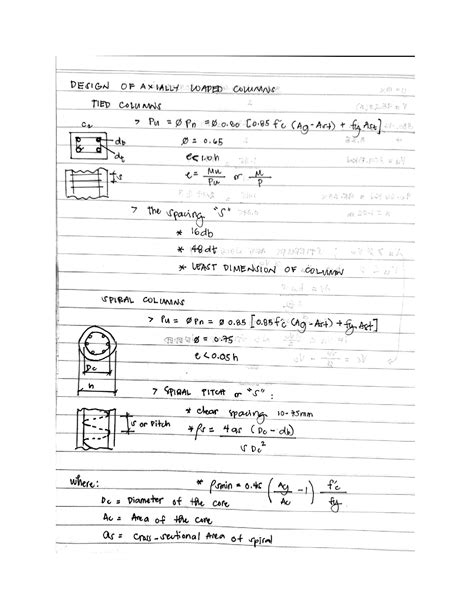 DESIGN OF AXIALLY LOADED COLUMNS
TIED COLUMNS
> Pu = ØPn = Ø 0.80 [0.85 f'c (Ag - Ast) + fy Ast]
db
Ø = 0.65
dt
e = Mu/Pu or M/P
S
> the spacing "S"
* 16db
* 48dt
* LEAST DIMENSION OF COLUMN
SPIRAL COLUMNS
> Pu = ØPn = Ø 0.85 [0.85 f'c (Ag - Ast) + fy Ast]
Ø = 0.75
e < 0.05h
Dc
h
> SPIRAL PITCH or "S" :
* clear spacing 10-75mm
S or Pitch
* ρs = 4as (Dc - db) / S Dc²
where:
* ρsmin = 0.45 (Ag/Ac - 1) f'c/fy
Dc = Diameter of the core
Ac = Area of the core
as = Cross-sectional Area of spiral